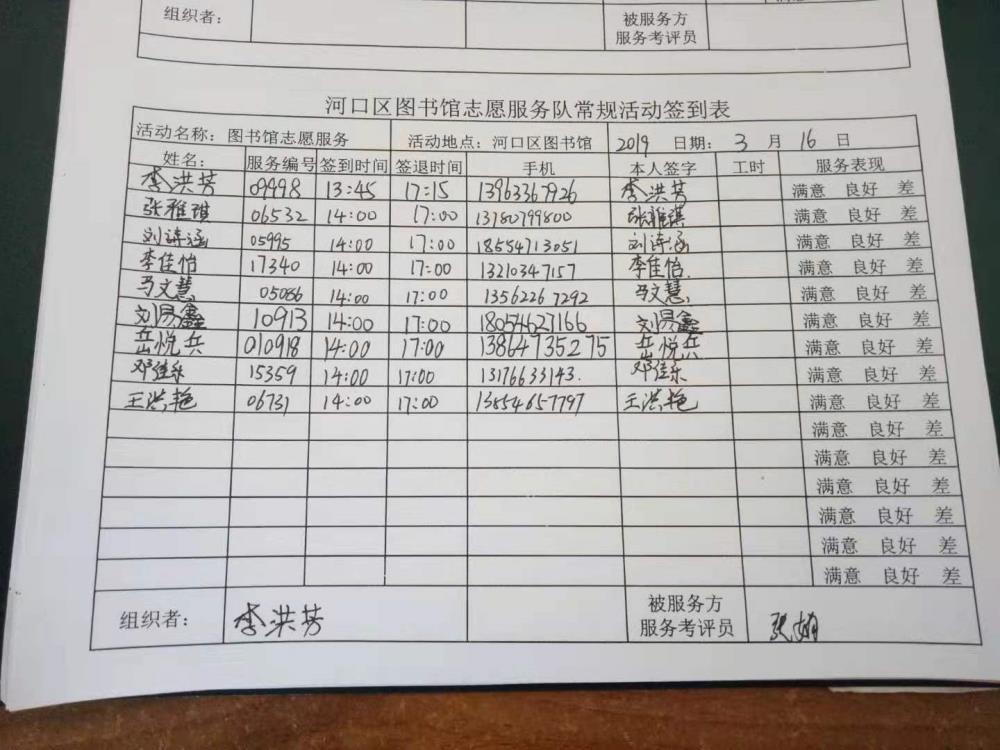 组织者： 被服务方
服务考评员
河口区图书馆志愿服务队常规活动签到表
活动名称：图书馆志愿服务 活动地点：河口区图书馆 2019 日期：3 月 16 日
姓名： 服务编号 签到时间 签退时间 手机 本人签字 工时 服务表现
李洪芳 09498 13:45 17:15 13963367926 李洪芳 满意 良好 差
张雅琪 06532 14:00 17:00 13780799800 张雅琪 满意 良好 差
刘诗涵 05995 14:00 17:00 18554713051 刘诗涵 满意 良好 差
李佳怡 17340 14:00 17:00 13210347157 李佳怡. 满意 良好 差
马文慧 05086 14:00 17:00 13562267292 马文慧 满意 良好 差
刘易鑫 10913 14:00 17:00 18054627166 刘易鑫 满意 良好 差
岳悦兵 010918 14:00 17:00 13864735275 岳悦兵 满意 良好 差
邓佳乐 15359 14:00 17:00 13176633143. 邓佳乐 满意 良好 差
王洪艳 06731 14:00 17:00 13554657797 王洪艳 满意 良好 差
满意 良好 差
满意 良好 差
满意 良好 差
满意 良好 差
满意 良好 差
满意 良好 差
组织者： 李洪芳 被服务方
服务考评员 张娟